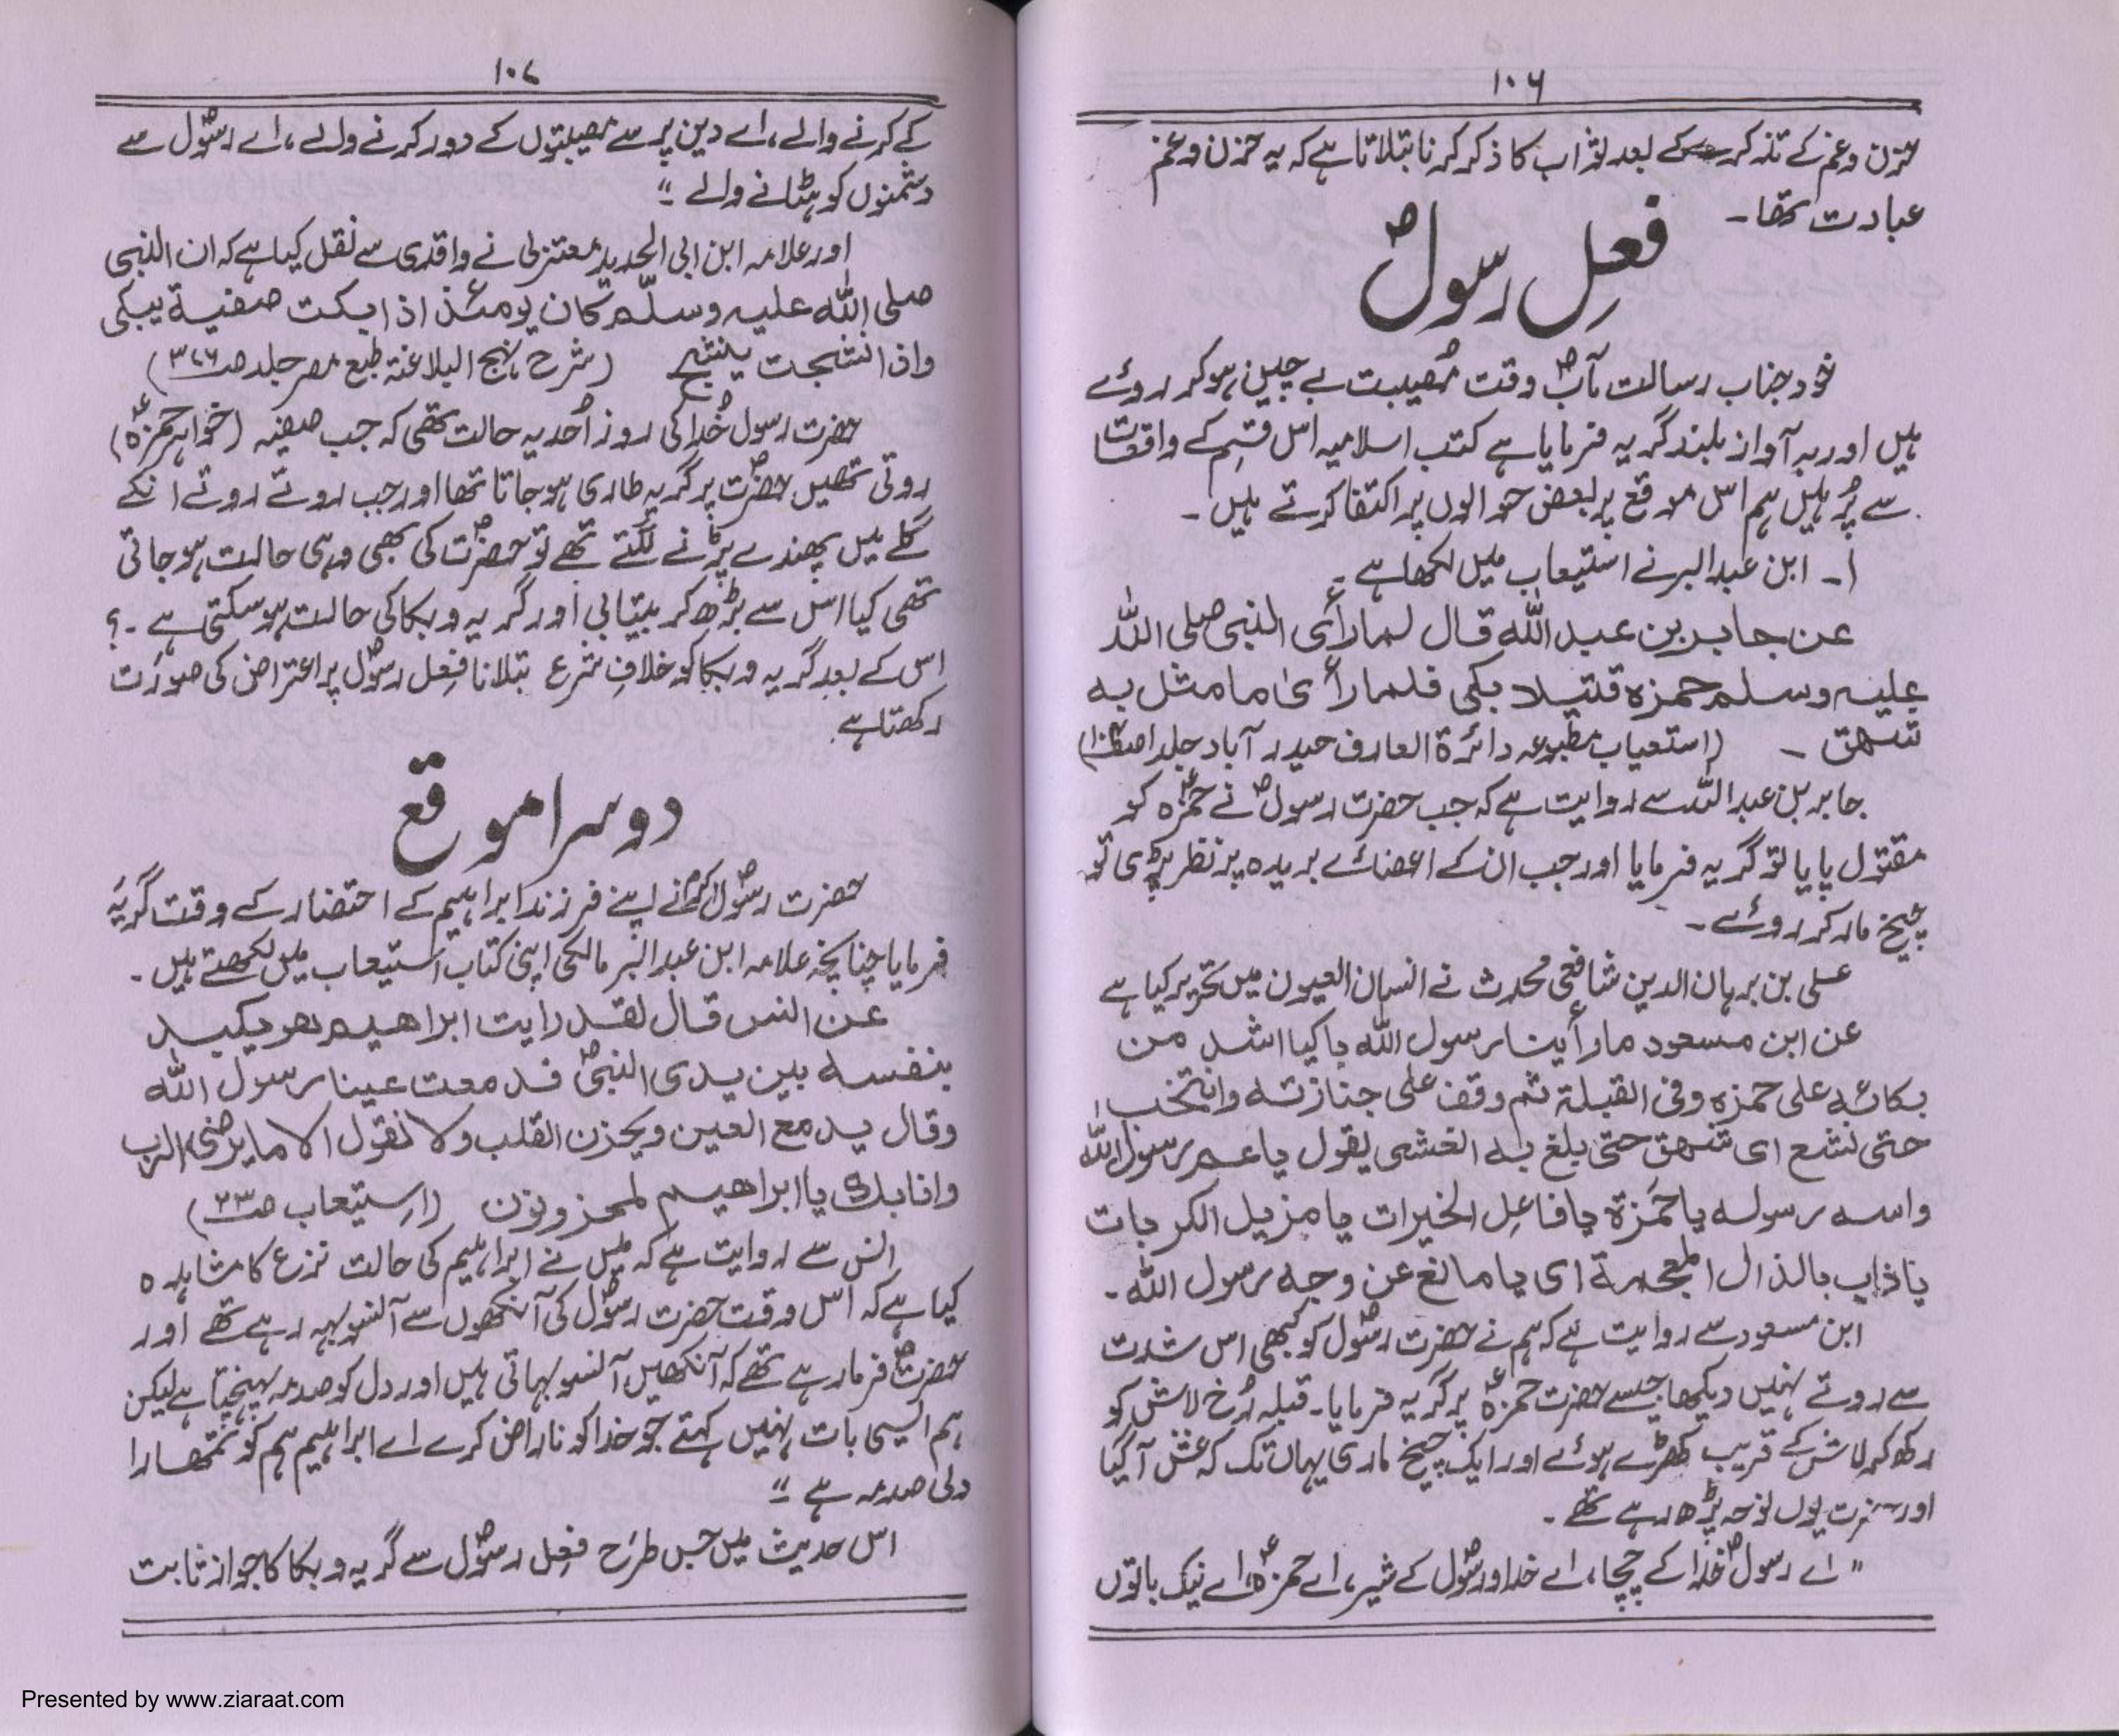 ۱۰۶
حزن و غم کے تذکرے کے بعد ثواب کا ذکر کرنا بتلاتا ہے کہ یہ حزن و غم
عبادت تھا۔
فعلِ رسولؐ
خود جناب رسالت مآبؐ وقت مصیبت بے چین ہو کر روئے
ہیں اور بہ آواز بلند گریہ فرمایا ہے کتب اسلامیہ اس قسم کے واقعات
سے پُر ہیں ہم اس موقع پر بعض حوالوں پر اکتفا کرتے ہیں۔
۱۔ ابن عبدالبر نے استیعاب میں لکھا ہے۔
عن جابر بن عبد اللہ قال لما رأی النبی صلی اللہ
علیہ وسلم حمزہ قتیلا بکی فلما رأی ما مثل بہ
تسھق ۔ (استعیاب مطبوعہ دائرۃ العارف حیدر آباد جلد ا ص۱۰۴)
جابر بن عبد اللہ سے روایت ہے کہ جب حضرت رسولؐ نے حمزہؑ کو
مقتول پایا تو گریہ فرمایا اور جب ان کے اعضائے بریدہ پر نظر پڑی تو
چیخ مار کر روئے۔
علی بن برہان الدین شافعی محدث نے انسان العیون میں تحریر کیا ہے
عن ابن مسعود ما رأینا رسول اللہ باکیا اشد من
بکائہ علی حمزہ وفی القبلۃ ثم وقف علی جنازتہ وانتخب
حتی نشع ای تسھق حتی بلغ بہ الغشی یقول یا عم رسول اللہ
واسد رسولہ یا حمزۃ یا فاعل الخیرات یا مزیل الکربات
یا ذاب بالذال المعجمۃ ای یا مانع عن وجہ رسول اللہ۔
ابن مسعود سے روایت ہے کہ ہم نے حضرت رسولؐ کو کبھی اس شدت
سے روتے نہیں دیکھا جیسے حضرت حمزہؑ پر گریہ فرمایا۔ قبلہ رُخ لاش کو
رکھ کر لاش کے قریب کھڑے ہوئے اور ایک چیخ ماری یہاں تک کہ غش آ گیا
اور حضرت یوں نوحہ پڑھ رہے تھے۔
"اے رسولؐ خدا کے چچا، اے خدا و رسولؐ کے شیر، اے حمزہؑ، اے نیک باتوں
۱۰۷
کے کرنے والے، اے دین پر سے مصیبتوں کے دور کرنے والے، اے رسولؐ سے
دشمنوں کو ہٹانے والے"
اور علامہ ابن ابی الحدید معتزلی نے واقدی سے نقل کیا ہے کہ ان النبی
صلی اللہ علیہ وسلّم کان یومئذ اذا بکت صفیۃ یبکی
واذا انتشجت ینشج (شرح نہج البلاغۃ طبع مصر جلد ص۳۸۶)
حضرت رسول خداؐ کی روز اُحد یہ حالت تھی کہ جب صفیہ (خواہر حمزہؑ)
روتی تھیں حضرتؐ پر گریہ طاری ہو جاتا تھا اور جب روتے روتے انکے
گلے میں پھندے پڑنے لگتے تھے تو حضرتؐ کی بھی وہی حالت ہو جاتی
تھی کیا اس سے بڑھ کر بیتابی اور گریہ و بکا کی حالت ہو سکتی ہے۔؟
اس کے بعد گریہ و بکا کو خلافِ شرع بتلانا فعل رسولؐ پر اعتراض کی صورت
رکھتا ہے
دوسرا موقع
حضرت رسولؐ اکرم نے اپنے فرزند ابراہیم کے احتضار کے وقت گریہ
فرمایا چنانچہ علامہ ابن عبد البر مالکی اپنی کتاب استیعاب میں لکھتے ہیں۔
عن انس قال لقد رایت ابراھیم وھو یکید
بنفسہ بین یدی النبیؐ فدمعت عینا رسول اللہ
وقال یدمع العین ویحزن القلب ولا نقول الا ما یرضی الرب
وانا بک یا ابراھیم لمحزونون (استیعاب ص۲۳)
انس سے روایت ہے کہ میں نے ابراہیم کی حالت نزع کا مشاہدہ
کیا ہے کہ اس وقت حضرت رسولؐ کی آنکھوں سے آنسو بہہ رہے تھے اور
حضرتؐ فرما رہے تھے کہ آنکھیں آنسو بہاتی ہیں اور دل کو صدمہ پہنچتا ہے لیکن
ہم ایسی بات نہیں کہتے جو خدا کو ناراض کرے اے ابراہیم ہم کو تمھارا
دلی صدمہ ہے"
اس حدیث میں جس طرح فعل رسولؐ سے گریہ و بکا کا جواز ثابت
Presented by www.ziaraat.com